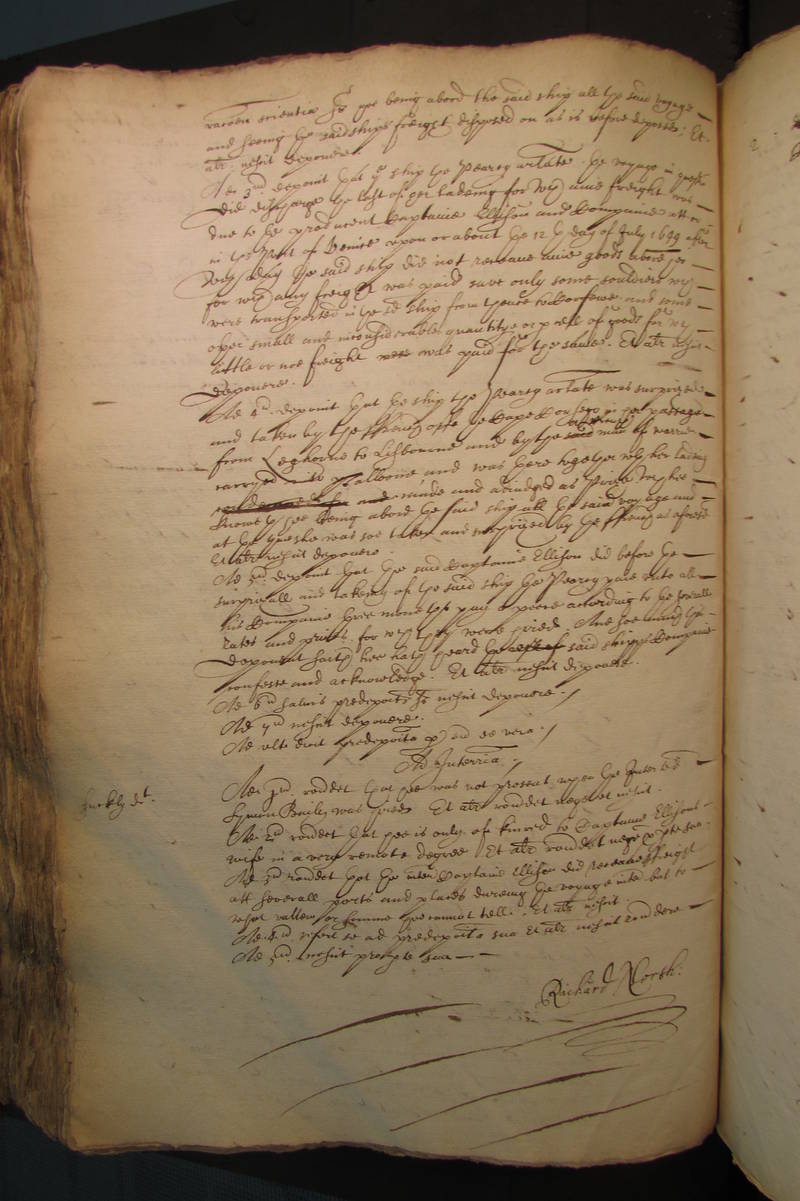 racõem scientiæ hee being abord the said ship all the said voyage
and seeing the said ships freight disposed on as is before deposed. Et
alr nescit deponere.
Ad 3um deponit that the ship the Pearez arlate the voyage in question
did discharge the last of her ladeing for which anie freight was
due to the producent Captaine Ellison and Companie att or
in the Port of Venice upon or about the 12th day of July 1649 after
which day the said ship did not receave anie goods abord her
for which any freight was paid save only some souldiers which
were transported in the sd ship from thence to Corfewe and some
other small and inconsiderable quantitye or parcell of goods for which
little or noe freight was paid for the same. Et alr nescit
deponere.
Ad 4um deponit that the ship the Pearez arlate was surprized
and taken by the ffrench offe the Cape in her passage
from Leghorne to Lisbourne and by the said men of warre
carryed to and was there together with her ladeing
made and adiudged as Prize which hee
knoweth hee being abord the said ship all the said voyage and
at the time shee was soe taken and surprized by the ffrench as aforesd
Et alr nescit deponere.
Ad 5um deponit that the said Captaine Ellison did before the
surprizall and takeing of the said ship the Pearez pay unto all
his Companie three moneths pay a peece according to the severall
rates and prices for which they were hired. And soe much this
deponent saith hee hath heard the said ships Companie
confesse and acknowledge. Et alr nescit deponere.
Ad 6um salvis predepositis suis nescit deponere.
Ad 7um nescit deponere.
Ad ult dicit predeposita p eum esse vera.
Ad Interria.
Ad 1um rondet that hee was not present when the Interrate
Symon Baily was hired Et alr rondet negative nescit.
Suckly dt.
Ad 2um rondet that hee is only of kinred to Captaine Ellisons
wife in a very remote degree Et alr rondet negative
Ad 3um rondet that the inter Captaine Ellison did receave ffreight
att severall ports and places dureing the voyage inter but to
what vallew or summe hee cannot tell. Et alr nescit.
Ad 4um refert se ad predeposita sua Et alr nescit rondere
Ad 5um nescit
Richard North.